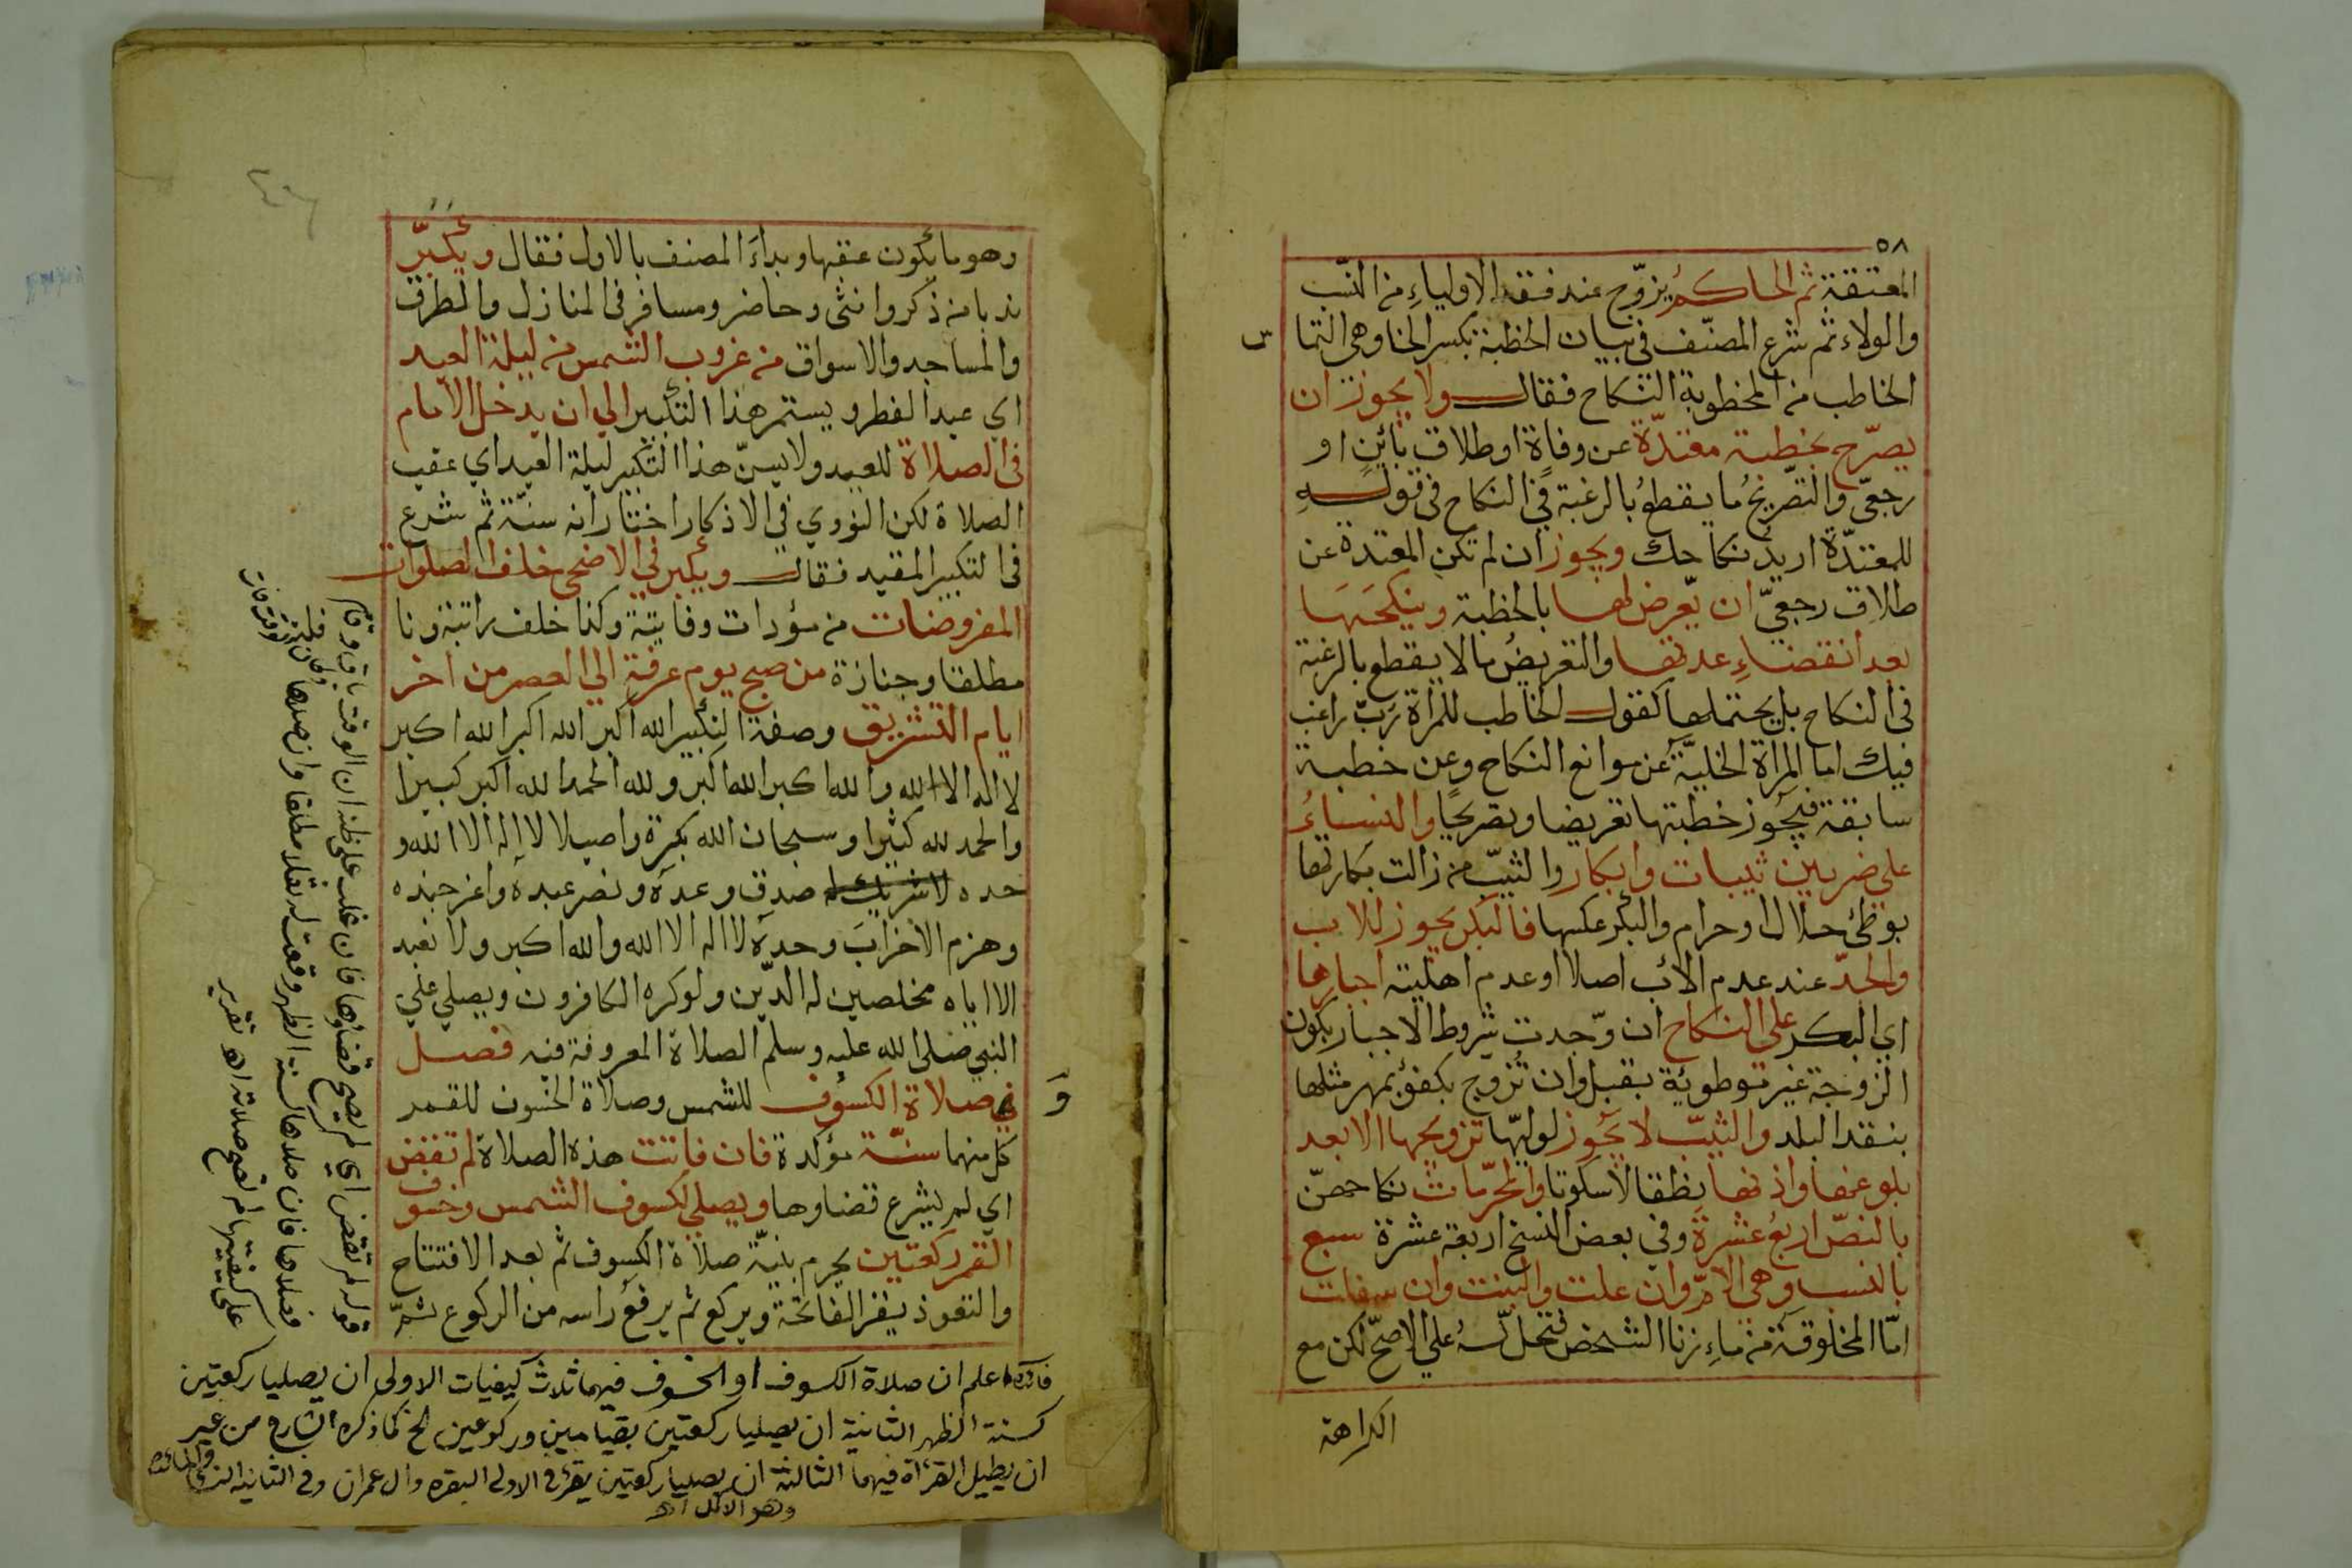 ٥٨
المعتقة ثم الحاكم يزوج عند فقد الاولياء من النسب
والولاء ثم شرع المصنف في بيان الخطبة بكسر الخا وهي التما
س
الخاطب من المخطوبة النكاح فقال ولا يجوز ان
يصرّح بخطبة معتدّة عن وفاة او طلاق بائن او
رجعي والتصريح ما يقطع بالرغبة في النكاح في قوله
للمعتدّة اريد نكاحك ويجوز ان لم تكن المعتدة عن
طلاق رجعيّ ان يعرض لها بالخطبة وينكحها
بعد انقضاء عدتها والتعريض ما لا يقطع بالرغبة
في النكاح بل يحتملها كقول الخاطب للمراة رب راغب
فيك اما المراة الخلية عن موانع النكاح وعن خطبة
سابقة فيجوز خطبتها تعريضا وتصريحا والنساء
علي ضربين ثيبات وابكار والثيب من زالت بكارتها
بوطئ حلال او حرام والبكر عكسها فالبكر يجوز للاب
والجدّ عند عدم الاب اصلا او عدم اهليته اجبارها
اي البكر علي النكاح ان وجدت شروط الاجبار بكون
الزوجة غير موطوئة بقبل وان تزوج بكفؤ بمهر مثلها
بنقد البلد والثيّب لا يجوز لوليّها تزويجها الا بعد
بلوغها واذنها نطقا لا سكوتا والمحرّمات نكاحهنّ
بالنصّ اربع عشرة وفي بعض النسخ اربعة عشرة سبع
بالنسب وهي الامّ وان علت والبنت وان سفلت
امّا المخلوقة من ماء زنا الشخص فتحل له علي الاصحّ لكن مع
الكراهة
وهو ما يكون عقبها وبداء المصنف بالاول فقال ويكبّر
ندبا من ذكر وانثى وحاضر ومسافر في المنازل والطرق
والمساجد والاسواق من غروب الشمس من ليلة العيد
اي عيد الفطر ويستمر هذا التكبير الي ان يدخل الامام
في الصلاة للعيد ولا يسنّ هذا التكبير ليلة العيد اي عقب
الصلاة لكن النووي في الاذكار اختار انه سنّة ثم شرع
في التكبير المقيد فقال ويكبر في الاضحى خلف الصلوات
المفروضات من مؤدات وفايتة وكذا خلف راتبة ونا
مطلقا وجنازة من صبح يوم عرفة الي العصر من اخر
ايام التشريق وصفة التكبير الله اكبر الله اكبر الله اكبر
لا اله الا الله والله اكبر الله اكبر ولله الحمد الله اكبر كبيرا
والحمد لله كثيرا وسبحان الله بكرة واصيلا لا اله الا الله و
حده لا شريك له صدق وعده ونصر عبده واعز جنده
وهزم الاحزاب وحده لا اله الا الله والله اكبر ولا نعبد
الا اياه مخلصين له الدّين ولو كره الكافرون ويصلي علي
النبي صلى الله عليه وسلم الصلاة المعروفة فيه فصل
في صلاة الكسوف للشمس وصلاة الخسوف للقمر
و
كل منهما سنّة مؤكدة فان فاتت هذه الصلاة لم تقض
اي لم يشرع قضاوها ويصلي لكسوف الشمس وخسوف
القمر ركعتين يحرم بنيّة صلاة الكسوف ثم بعد الافتتاح
والتعوذ يقرا الفاتحة ويركع ثم يرفع راسه من الركوع ثمّ
قوله لم تقض اي لم يصح قضاؤها فان غلب على ظنه ان الوقت باق
فصلاها فان صلاها كسنة الظهر وقعت له نفلا مطلقا وان صلاها
على كيفيتها لم تصح صلاته اهـ تقرير
فائدة اعلم ان صلاة الكسوف او الخسوف فيهما ثلاث كيفيات الاولى ان يصليا ركعتين
كسنة الظهر الثانية ان يصليا ركعتين بقيامين وركوعين الخ كما ذكره الشارح من غير
ان يطيل القرأة فيهما الثالثة ان يصليا ركعتين يقرأ في الاولى البقره وال عمران وفي الثانيه النسا والمائده
وهو الاكمل اهـ